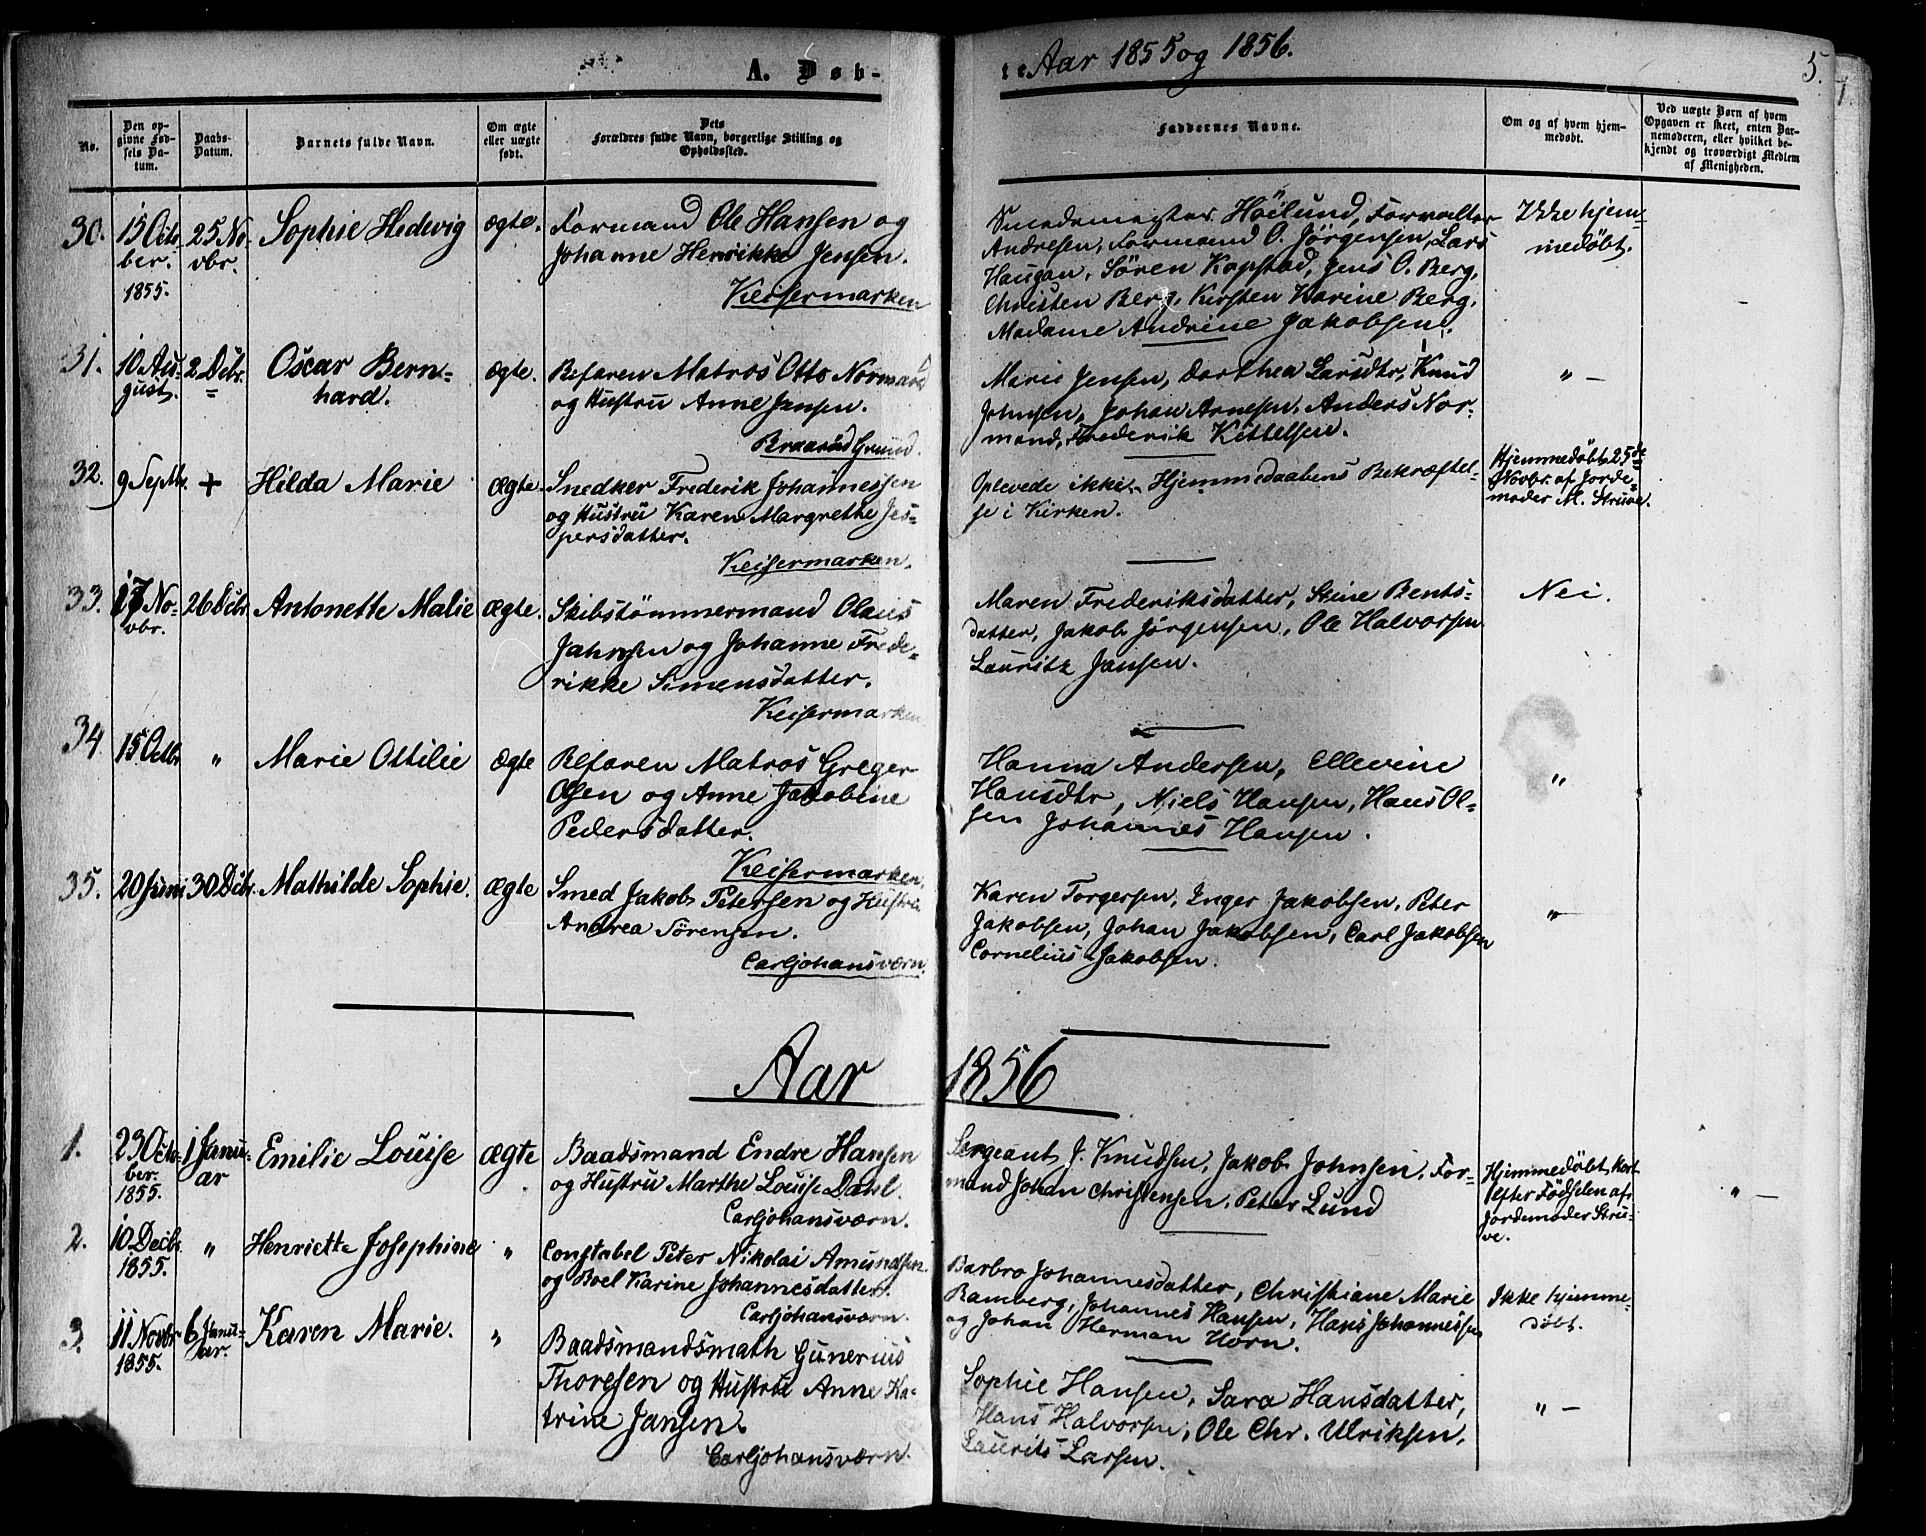 A. Døb-
te Aar 1855 og 1856.
5.
No.
Den op-
givne Fød-
sels Da-
tum.
Daabs-
Datum.
Barnets fulde Navn.
Om ægte
eller uægte
født.
Dets
Forældres fulde Navn, borgerlige Stilling og
Opholdssted.
Faddernes Navne.
Om og af hvem hjem-
medøbt.
Ved uægte Børn af hvem
Opgaven er skeet, enten Bar-
nemoderen, eller hvilket be-
kjendt og troværdigt Medlem
af Menigheden.
30.
15 Octo-
ber.
1855.
25 No-
vbr.
Sophie Hedevig
ægte.
Formand Ole Hansen og
Johanne Henrikke Jensen.
Keisermarken
Smedemester Höilund, Forvalter
Andresen, Formand O. Jörgensen, Lars
Haugan, Sören Kopstad, Jens O. Berg,
Christen Berg, Kirsten Karine Berg,
Madame Andrine Jakobsen.
Ikke hjem-
medöbt.
31.
10 Au-
gust.
2 Decbr.
Oscar Bern-
hard.
ægte.
Befaren Matros Otto Normand
og Hustru Anne Jansen.
Braarud Grund.
Marie Jensen, Dorthea Larsdtr, Knud
Johnsen, Johan Arnesen, Anders Nor-
mand, Frederik Kittelsen.
" —
32.
9 Septbr.
+
Hilda Marie
ægte
Snedker Frederik Johannessen
og Hustru Karen Margrethe Jes-
persdatter.
Keisermarken.
Oplevede ikke Hjemmedaabens Bekræftel-
se i Kirken.
Hjemmedöbt 25de
Novbr. af Jorde-
moder M. Struve.
33.
17 No-
vbr.
26 Decbr.
Antonette Malie
ægte.
Skibstömmermand Olaus
Jahnsen og Johanne Frede-
rikke Simensdatter.
Keisermarken
Maren Frederiksdatter, Stine Bents-
datter, Jakob Jörgensen, Ole Halvorsen
Lauritz Jansen.
Nei.
34
15 Octbr
"
Marie Ottilie
ægte
Befaren Matros Greger
Olsen og Anne Jakobine
Pedersdatter.
Keisermarken.
Hanna Andersen, Ellevine
Hansdtr, Niels Hansen, Hans Ol-
sen Johannes Hansen.
"
35.
20 Juni
30 Decbr.
Mathilde Sophie.
ægte
Smed Jakob Petersen og Hustru
Andrea Sörensen.
Carljohansværn.
Karen Torgersen, Inger Jakobsen, Peter
Jakobsen, Johan Jakobsen, Carl Jakobsen
Cornelius Jakobsen.
"
Aar 1856
1.
23 Octo-
ber.
1855.
1 Janu-
ar
Emilie Louise
ægte
Baadsmand Endre Hansen
og Hustru Marthe Louise Dahl.
Carljohansværn.
Sergeant J. Knudsen, Jakob Johnsen, For-
mand Johan Christensen, Peter Lund
Hjemmedöbt kort
efter Födselen af
Jordemoder Stru-
ve.
" —
2.
10 Decbr.
1855.
"
Henriette Josephine
"
Constabel Peter Nikolai Amundsen
og Boel Karine Johannesdatter.
Carljohansværn.
Barbro Johannesdatter, Christiane Marie
Ramberg, Johannes Hansen, Hans Johannessen
og Johan Herman Horn.
Ikke hjemme-
döbt.
3.
11 Novbr
1855.
6 Janu-
ar.
Karen Marie.
"
Baadsmandsmath Gunerius
Thoresen og Hustru Anne Ka-
trine Jansen.
Carljohansværn.
Sophie Hansen, Sara Hansdatter,
Hans Halvorsen, Ole Chr. Ulriksen,
Laurits Larsen.
" —